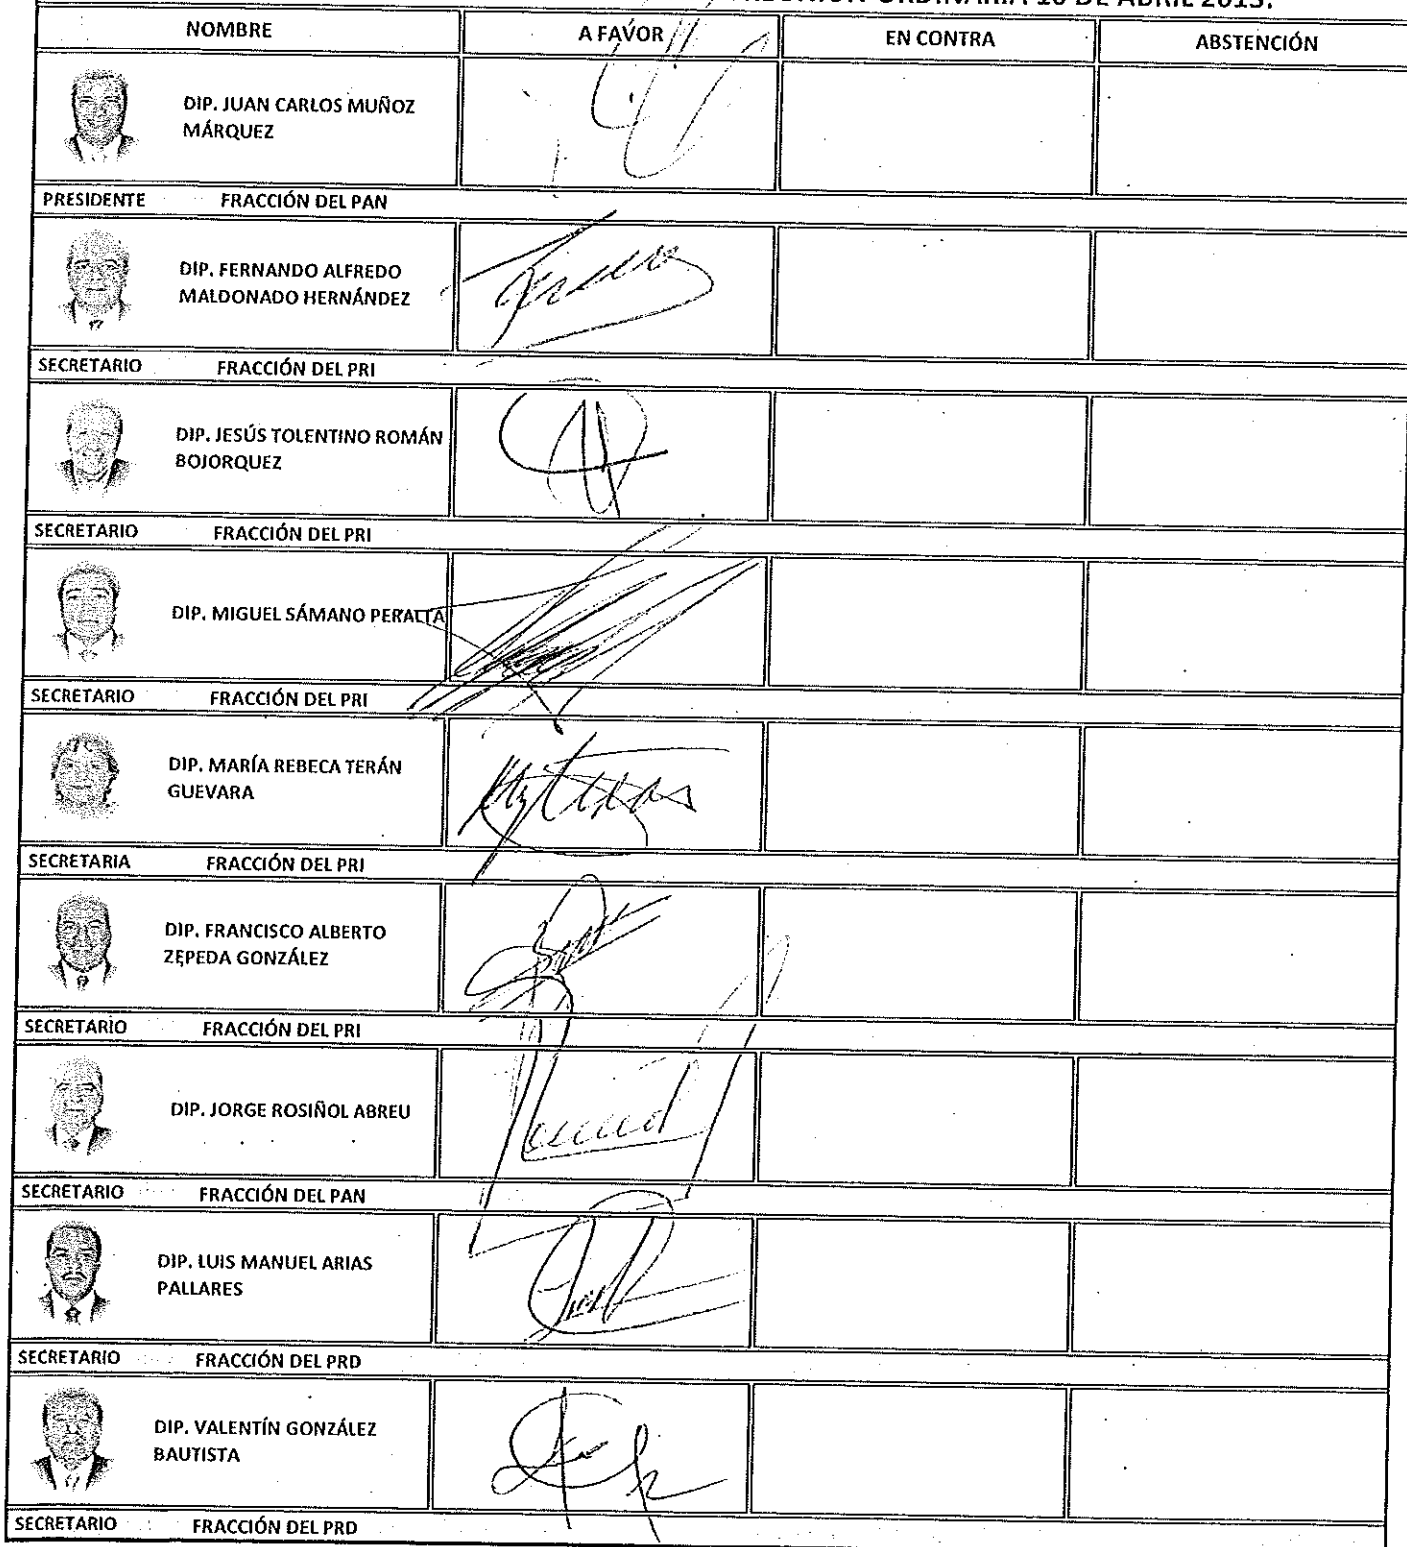 ORDINARIA 10 DE ABRIL 2013.
NOMBRE A FAVOR EN CONTRA ABSTENCIÓN
DIP. JUAN CARLOS MUÑOZ
MÁRQUEZ
PRESIDENTE FRACCIÓN DEL PAN
DIP. FERNANDO ALFREDO
MALDONADO HERNÁNDEZ
SECRETARIO FRACCIÓN DEL PRI
DIP. JESÚS TOLENTINO ROMÁN
BOJORQUEZ
SECRETARIO FRACCIÓN DEL PRI
DIP. MIGUEL SÁMANO PERALTA
SECRETARIO FRACCIÓN DEL PRI
DIP. MARÍA REBECA TERÁN
GUEVARA
SECRETARIA FRACCIÓN DEL PRI
DIP. FRANCISCO ALBERTO
ZEPEDA GONZÁLEZ
SECRETARIO FRACCIÓN DEL PRI
DIP. JORGE ROSIÑOL ABREU
SECRETARIO FRACCIÓN DEL PAN
DIP. LUIS MANUEL ARIAS
PALLARES
SECRETARIO FRACCIÓN DEL PRD
DIP. VALENTÍN GONZÁLEZ
BAUTISTA
SECRETARIO FRACCIÓN DEL PRD